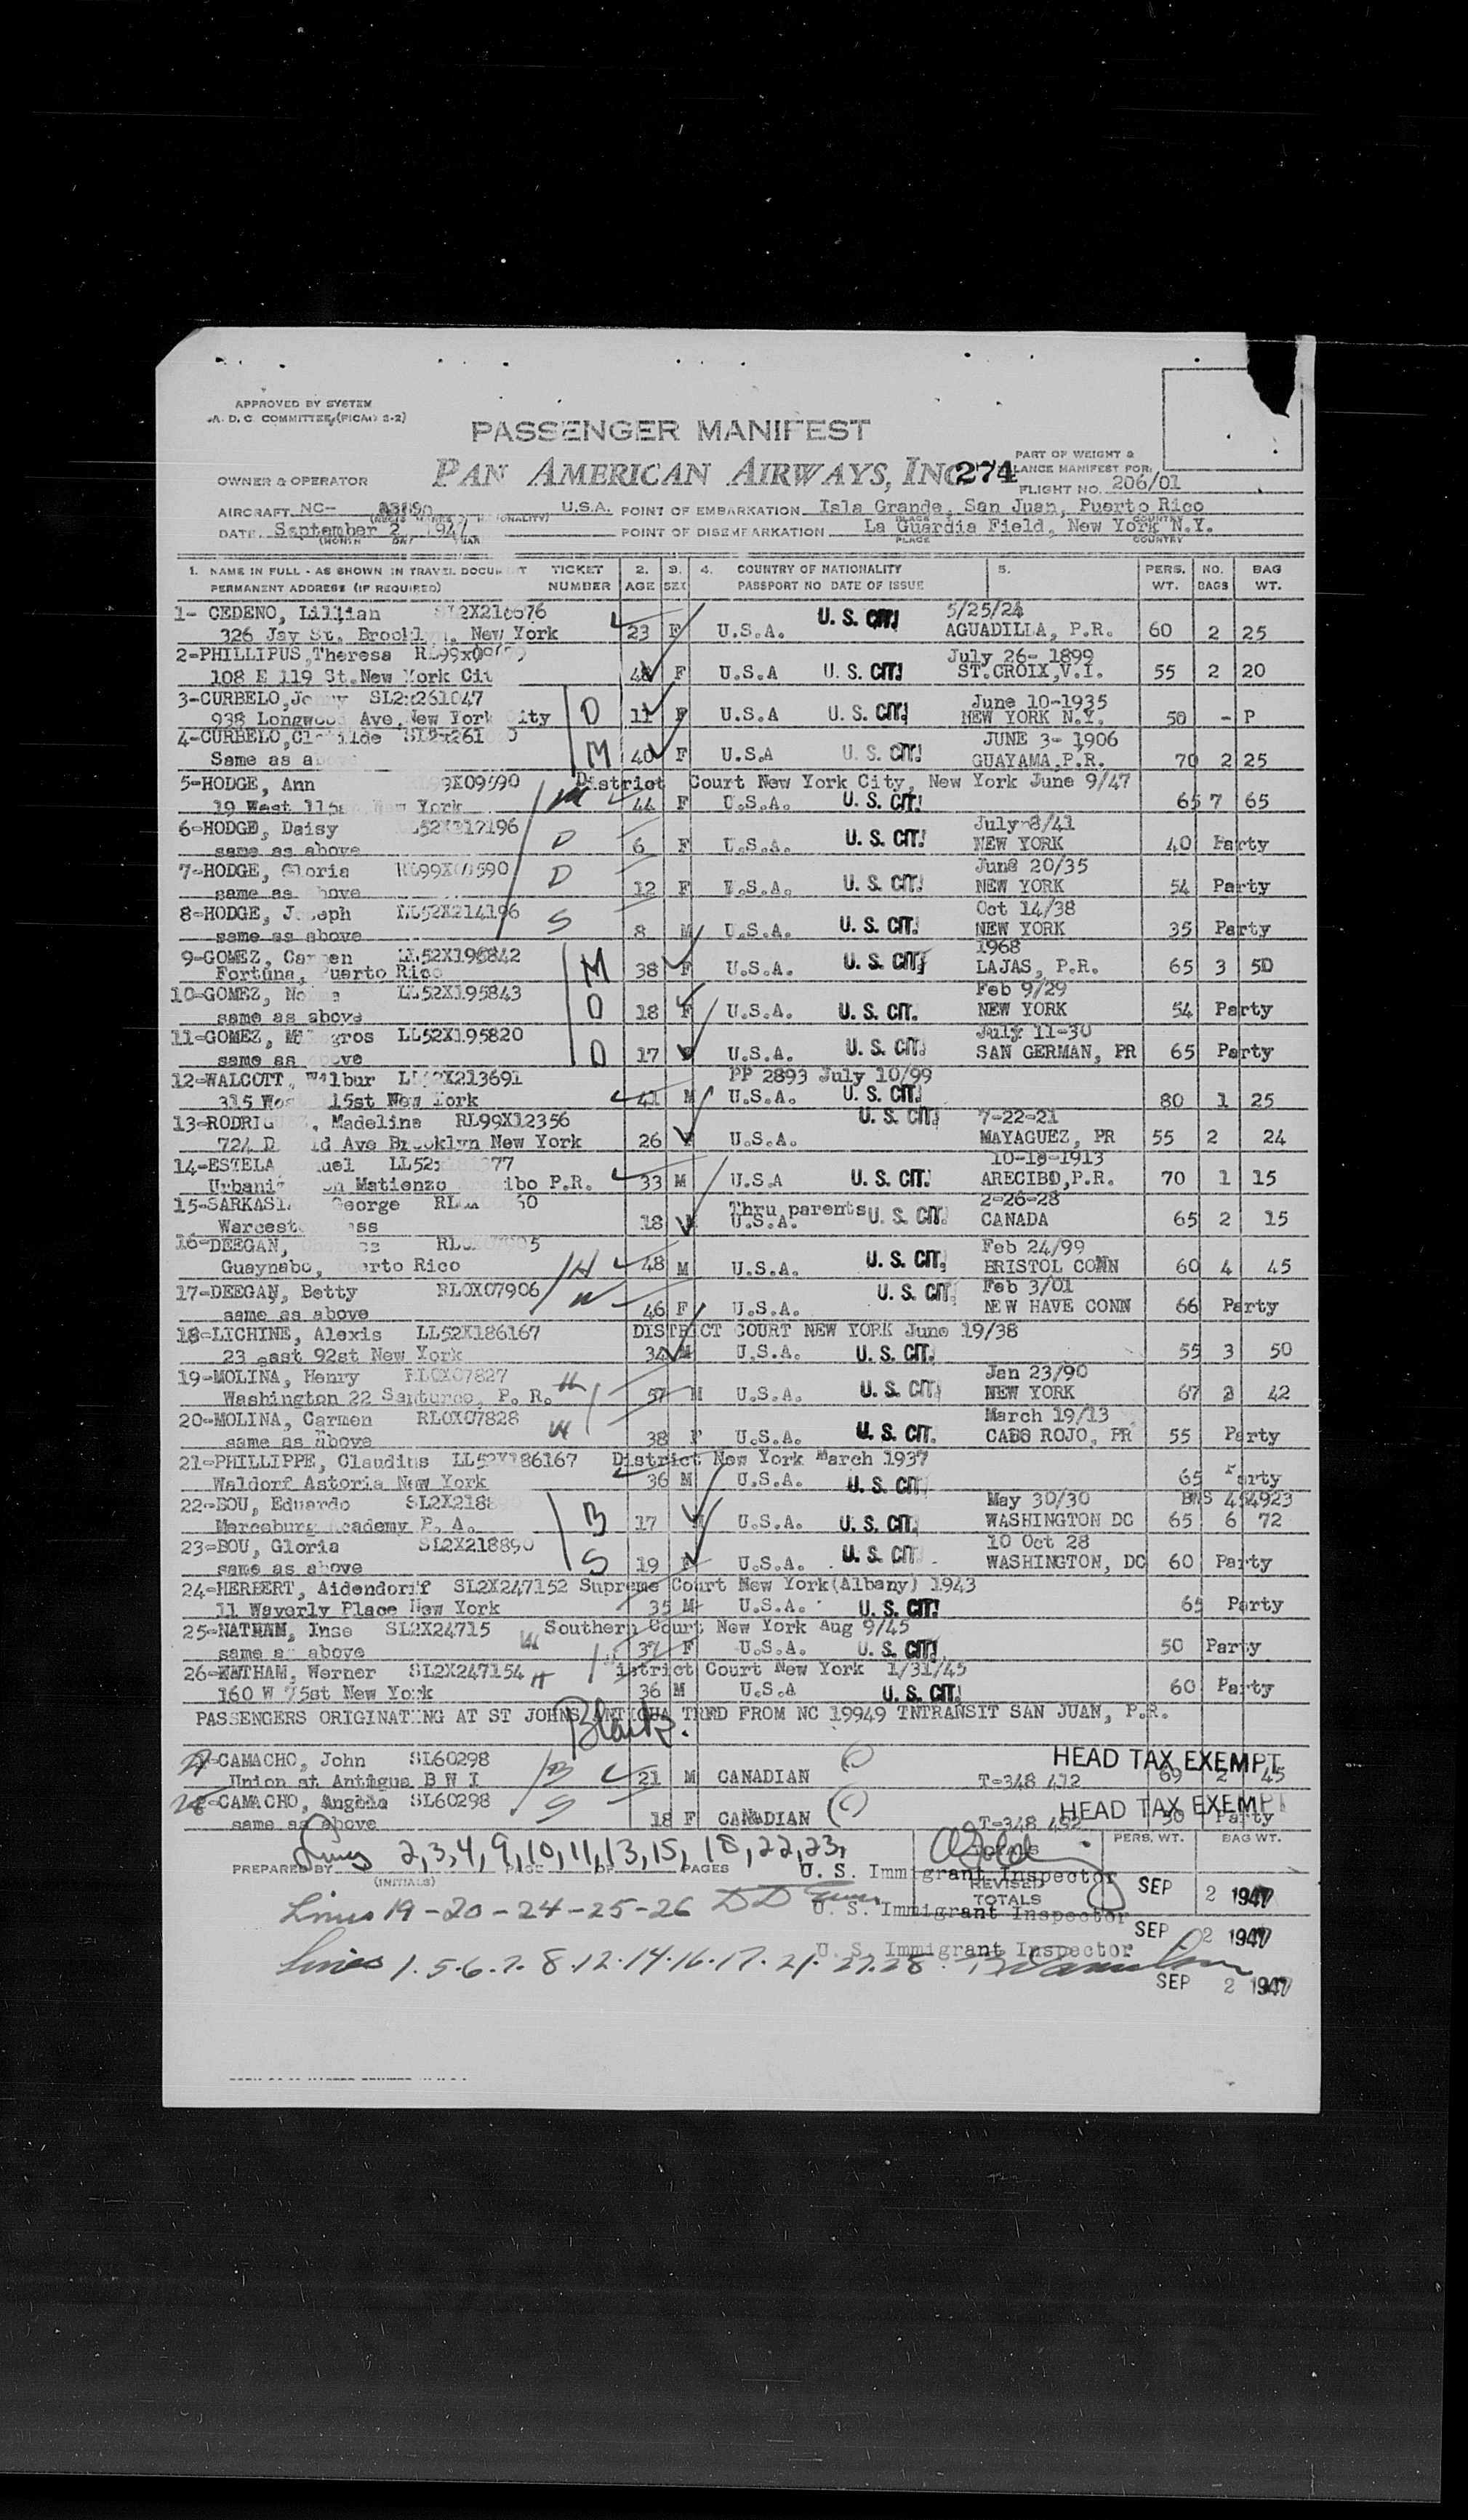 APPROVED BY SYSTEM
A. D. C. COMMITTEE (PICAO 2-2)
PASSENGER MANIFEST
PAN AMERICAN AIRWAYS, INC. 274
PART OF WEIGHT &
BALANCE MANIFEST FOR:
OWNER & OPERATOR
FLIGHT NO. 206/01
AIRCRAFT NC- U.S.A. POINT OF EMBARKATION Isla Grande, San Juan, Puerto Rico
DATE September 2 1947 POINT OF DISEMBARKATION La Guardia Field, New York N.Y.
(MONTH DAY YEAR PLACE COUNTRY
1. NAME IN FULL - AS SHOWN IN TRAVEL DOCUMENT TICKET 2. 3. 4. COUNTRY OF NATIONALITY 5. PERS. NO. BAG
PERMANENT ADDRESS (IF REQUIRED) NUMBER AGE SEX PASSPORT NO DATE OF ISSUE WT. BAGS WT.
1- CEDENO, Lillian U. S. CIT. 5/25/24
326 Jay St. Brooklyn, New York 23 F U.S.A. AGUADILLA, P.R. 60 2 25
2-PHILLIPUS, Theresa July 26- 1899
108 E 119 St. New York City F U.S.A U. S. CIT. ST. CROIX, V.I. 55 2 20
3-CURBELO, SL2x261047 June 10-1935
938 Longwood Ave. New York City D 11 F U.S.A U. S. CIT. NEW YORK N.Y. 50 - P
4-CURBELO, JUNE 3- 1906
Same as M 40 F U.S.A U. S. CIT. GUAYAMA, P.R. 70 2 25
5-HODGE, Ann District Court New York City, New York June 9/47
19 West New York M 44 F U.S.A. U. S. CIT. 65 7 65
6-HODGE, Daisy July 8/41
same as above D 6 F U.S.A. U. S. CIT. NEW YORK 40 Party
7-HODGE, Gloria June 20/35
same as above D 12 F U.S.A. U. S. CIT. NEW YORK 54 Party
8-HODGE, Joseph LL52X214196 Oct 14/38
same as above S 8 M U.S.A. U. S. CIT. NEW YORK 35 Party
9-GOMEZ, Carmen LL52X195842 1968
Fortuna, Puerto Rico M 38 F U.S.A. U. S. CIT. LAJAS, P.R. 65 3 50
10-GOMEZ, LL52X195843 Feb 9/29
same as above D 18 F U.S.A. U. S. CIT. NEW YORK 54 Party
11-GOMEZ, Milagros LL52X195820 July 11-30
same as above D 17 U.S.A. U. S. CIT. SAN GERMAN, PR 65 Party
12-WALCOTT, Wilbur PP 2893 July 10/99
315 West 115st New York 41 M U.S.A. U. S. CIT. 80 1 25
13-RODRIGUEZ, Madeline RL99X12356 U. S. CIT. 7-22-21
724 Ave Brooklyn New York 26 U.S.A. MAYAGUEZ, PR 55 2 24
14-ESTELA, 10-18-1913
Matienzo P.R. 33 M U.S.A U. S. CIT. ARECIBO, P.R. 70 1 15
15- George Thru parents 2-26-28
18 U.S.A. U. S. CIT. CANADA 65 2 15
16-DEEGAN, Feb 24/99
Guaynabo, Puerto Rico H 48 M U.S.A. U. S. CIT. BRISTOL CONN 60 4 45
17-DEEGAN, Betty RLOX07906 Feb 3/01
same as above W 46 F U.S.A. U. S. CIT. NEW HAVE CONN 66 Party
18-LICHINE, Alexis LL52X186167 DISTRICT COURT NEW YORK June 19/38
23 east 92st New York 34 M U.S.A. U. S. CIT. 55 3 50
19-MOLINA, Henry RLOX07827 Jan 23/90
Washington 22 Santurce, P. R. H 57 M U.S.A. U. S. CIT. NEW YORK 67 2 42
20-MOLINA, Carmen RLOX07828 March 19/13
same as above W 38 F U.S.A. U. S. CIT. CABO ROJO, PR 55 Party
21-PHILLIPPE, Claudius LL52X186167 District New York March 1937
Waldorf Astoria New York 36 M U.S.A. U. S. CIT. 65 Party
22-BOU, Eduardo May 30/30
Mercsburg Academy P. A. B 17 U.S.A. U. S. CIT. WASHINGTON DC 65 6 72
23-BOU, Gloria SL2X218890 10 Oct 28
same as above S 19 F U.S.A. U. S. CIT. WASHINGTON, DC 60 Party
24-HERBERT, Aidendorff SL2X247152 Supreme Court New York(Albany) 1943
11 Waverly Place New York 35 M U.S.A. U. S. CIT. 65 Party
25-NATHAN, Inse SL2X24715 Southern Court New York Aug 9/45
same as above W 37 F U.S.A. U. S. CIT. 50 Party
26-NATHAM, Werner SL2X247154 H District Court New York 1/31/45
160 W 75st New York 36 M U.S.A U. S. CIT. 60 Party
PASSENGERS ORIGINATING AT ST JOHNS ANTIGUA TRFD FROM NC 19949 INTRANSIT SAN JUAN, P.R.
27-CAMACHO, John SL60298 HEAD TAX EXEMPT
Union st Antigua B W I B 21 M CANADIAN 69 2 45
28-CAMACHO, Angela SL60298 HEAD TAX EXEMPT
same as above S 18 F CANADIAN 50 Party
Lines 2, 3, 4, 9, 10, 11, 13, 15, 18, 22, 23, PERS. WT. BAG WT.
PREPARED BY PAGE OF PAGES U. S. Immigrant Inspector
(INITIALS) REVISED TOTALS SEP 2 1947
Lines 19-20-24-25-26 U. S. Immigrant Inspector
SEP 2 1947
U. S. Immigrant Inspector
Lines 1.5.6.7.8.12.14.16.17.21.27.28
SEP 2 1947